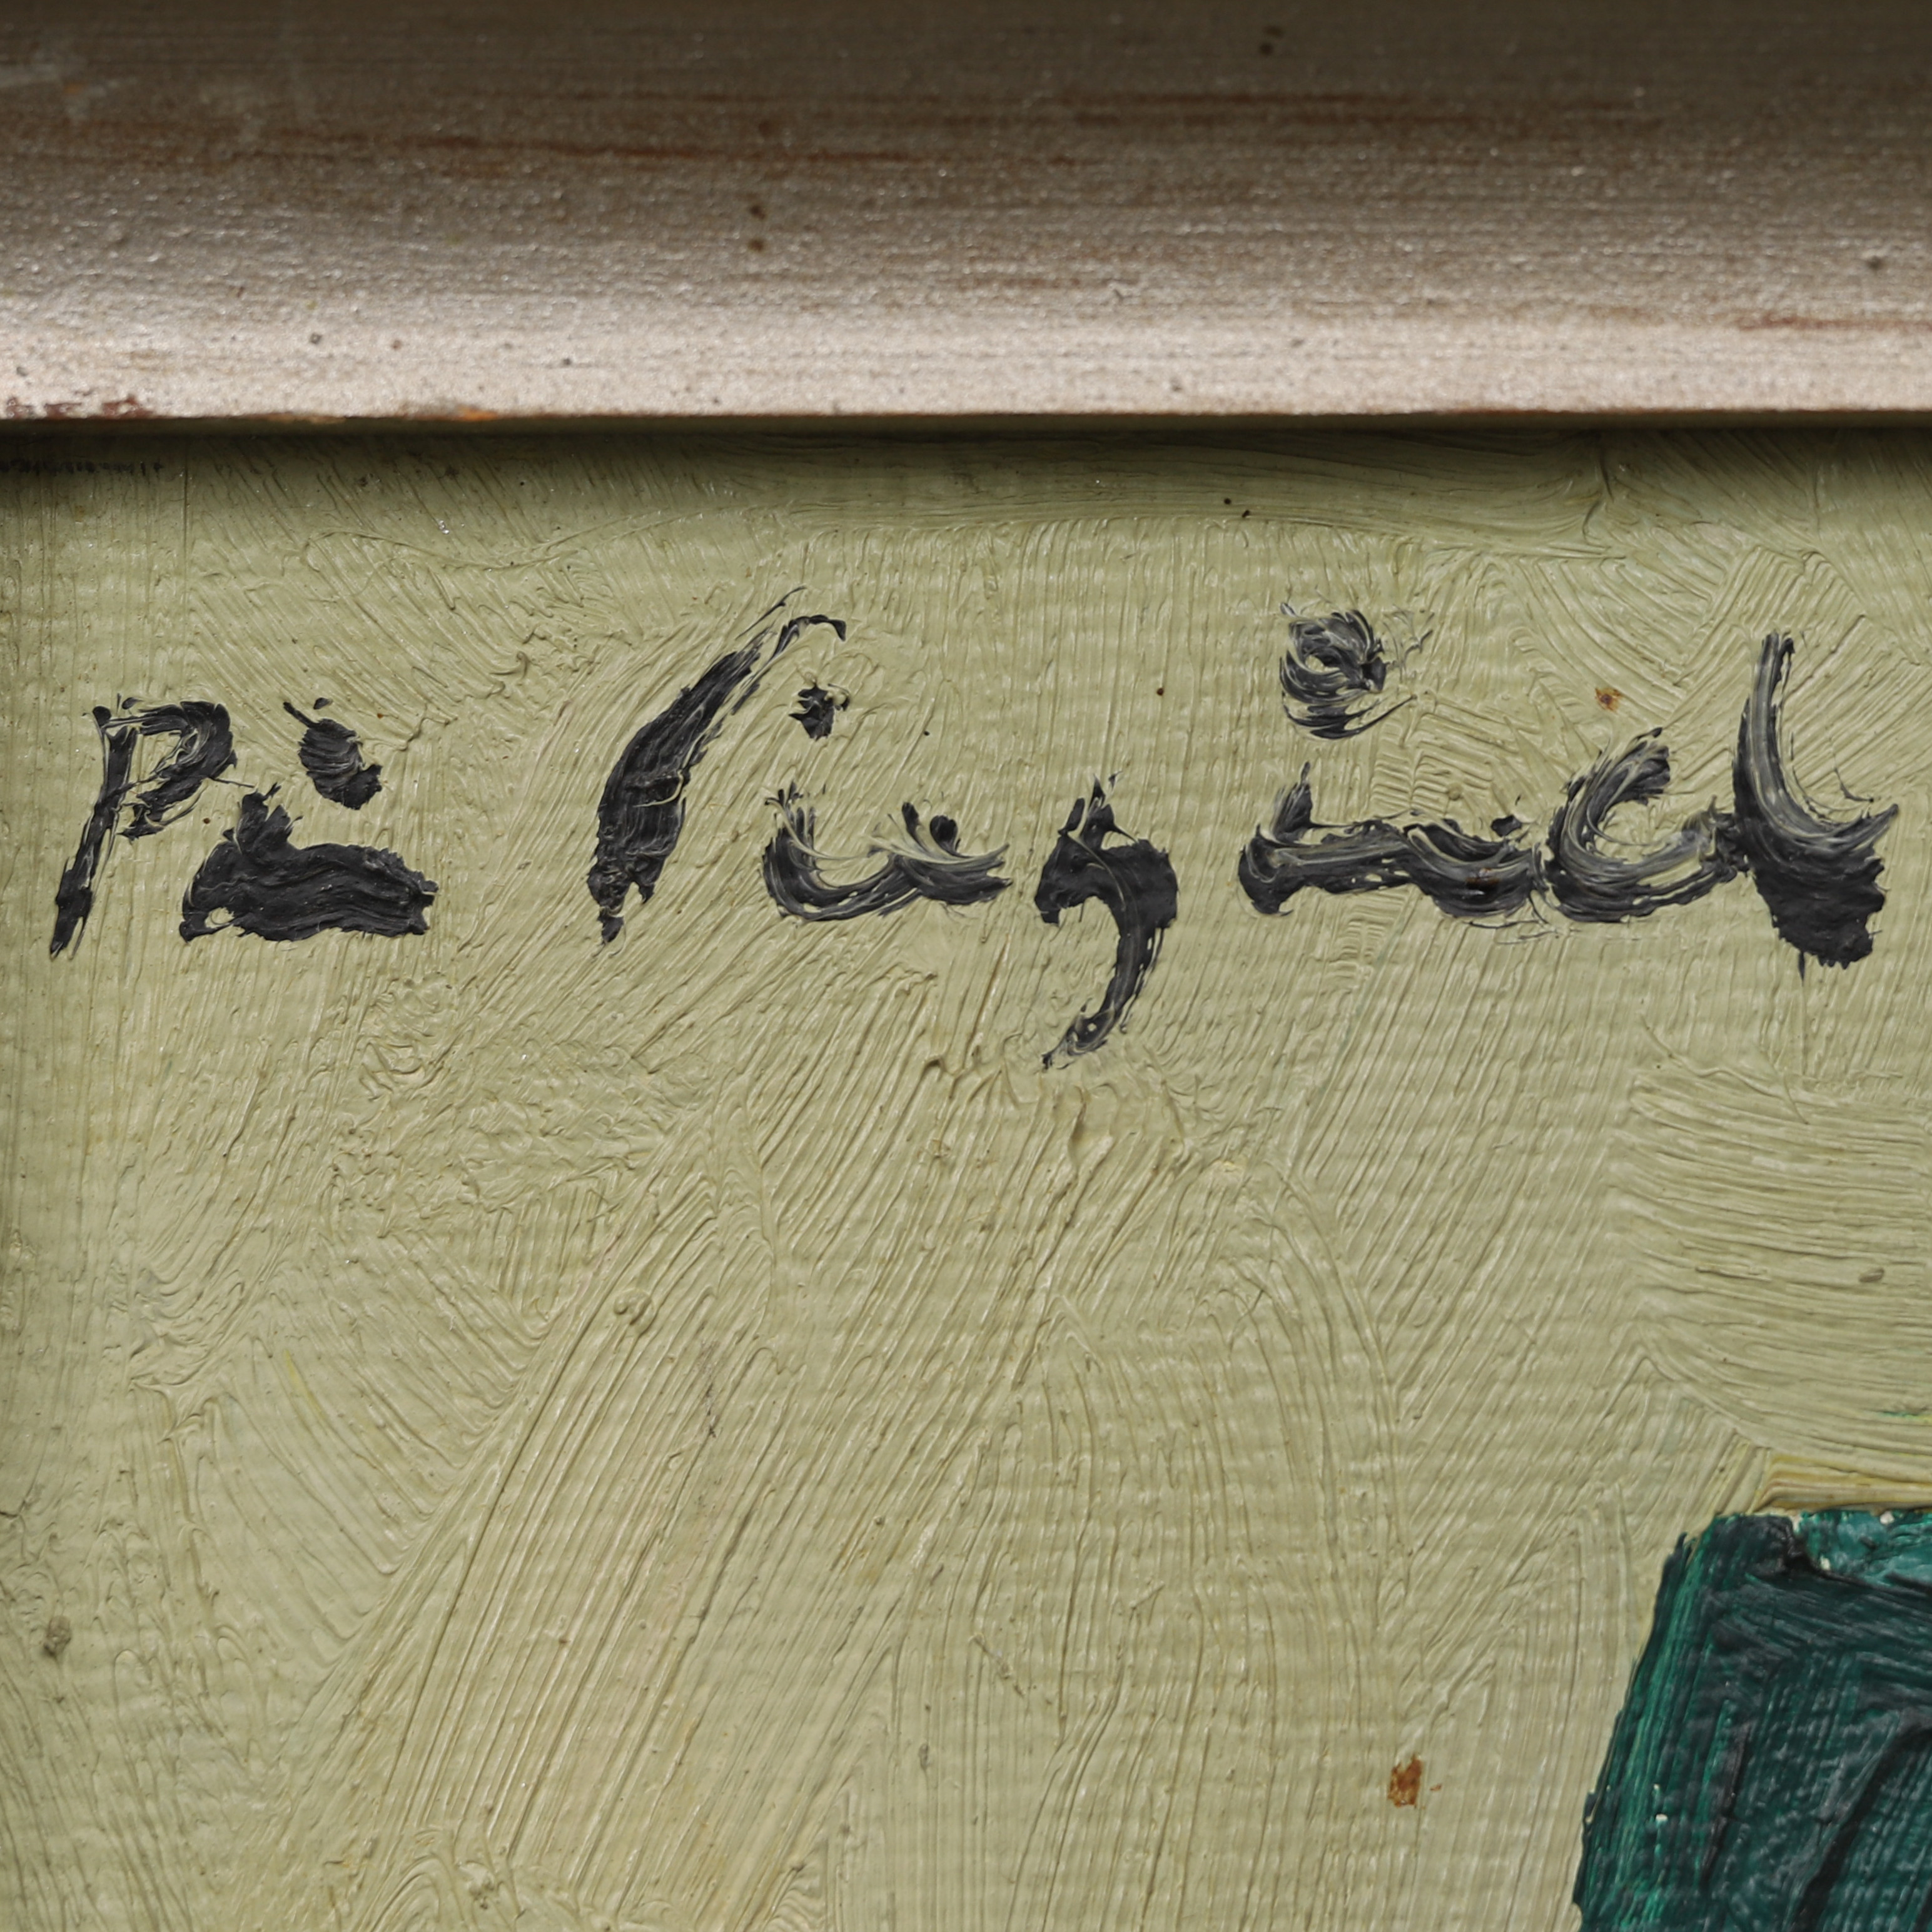 Pär Siegård